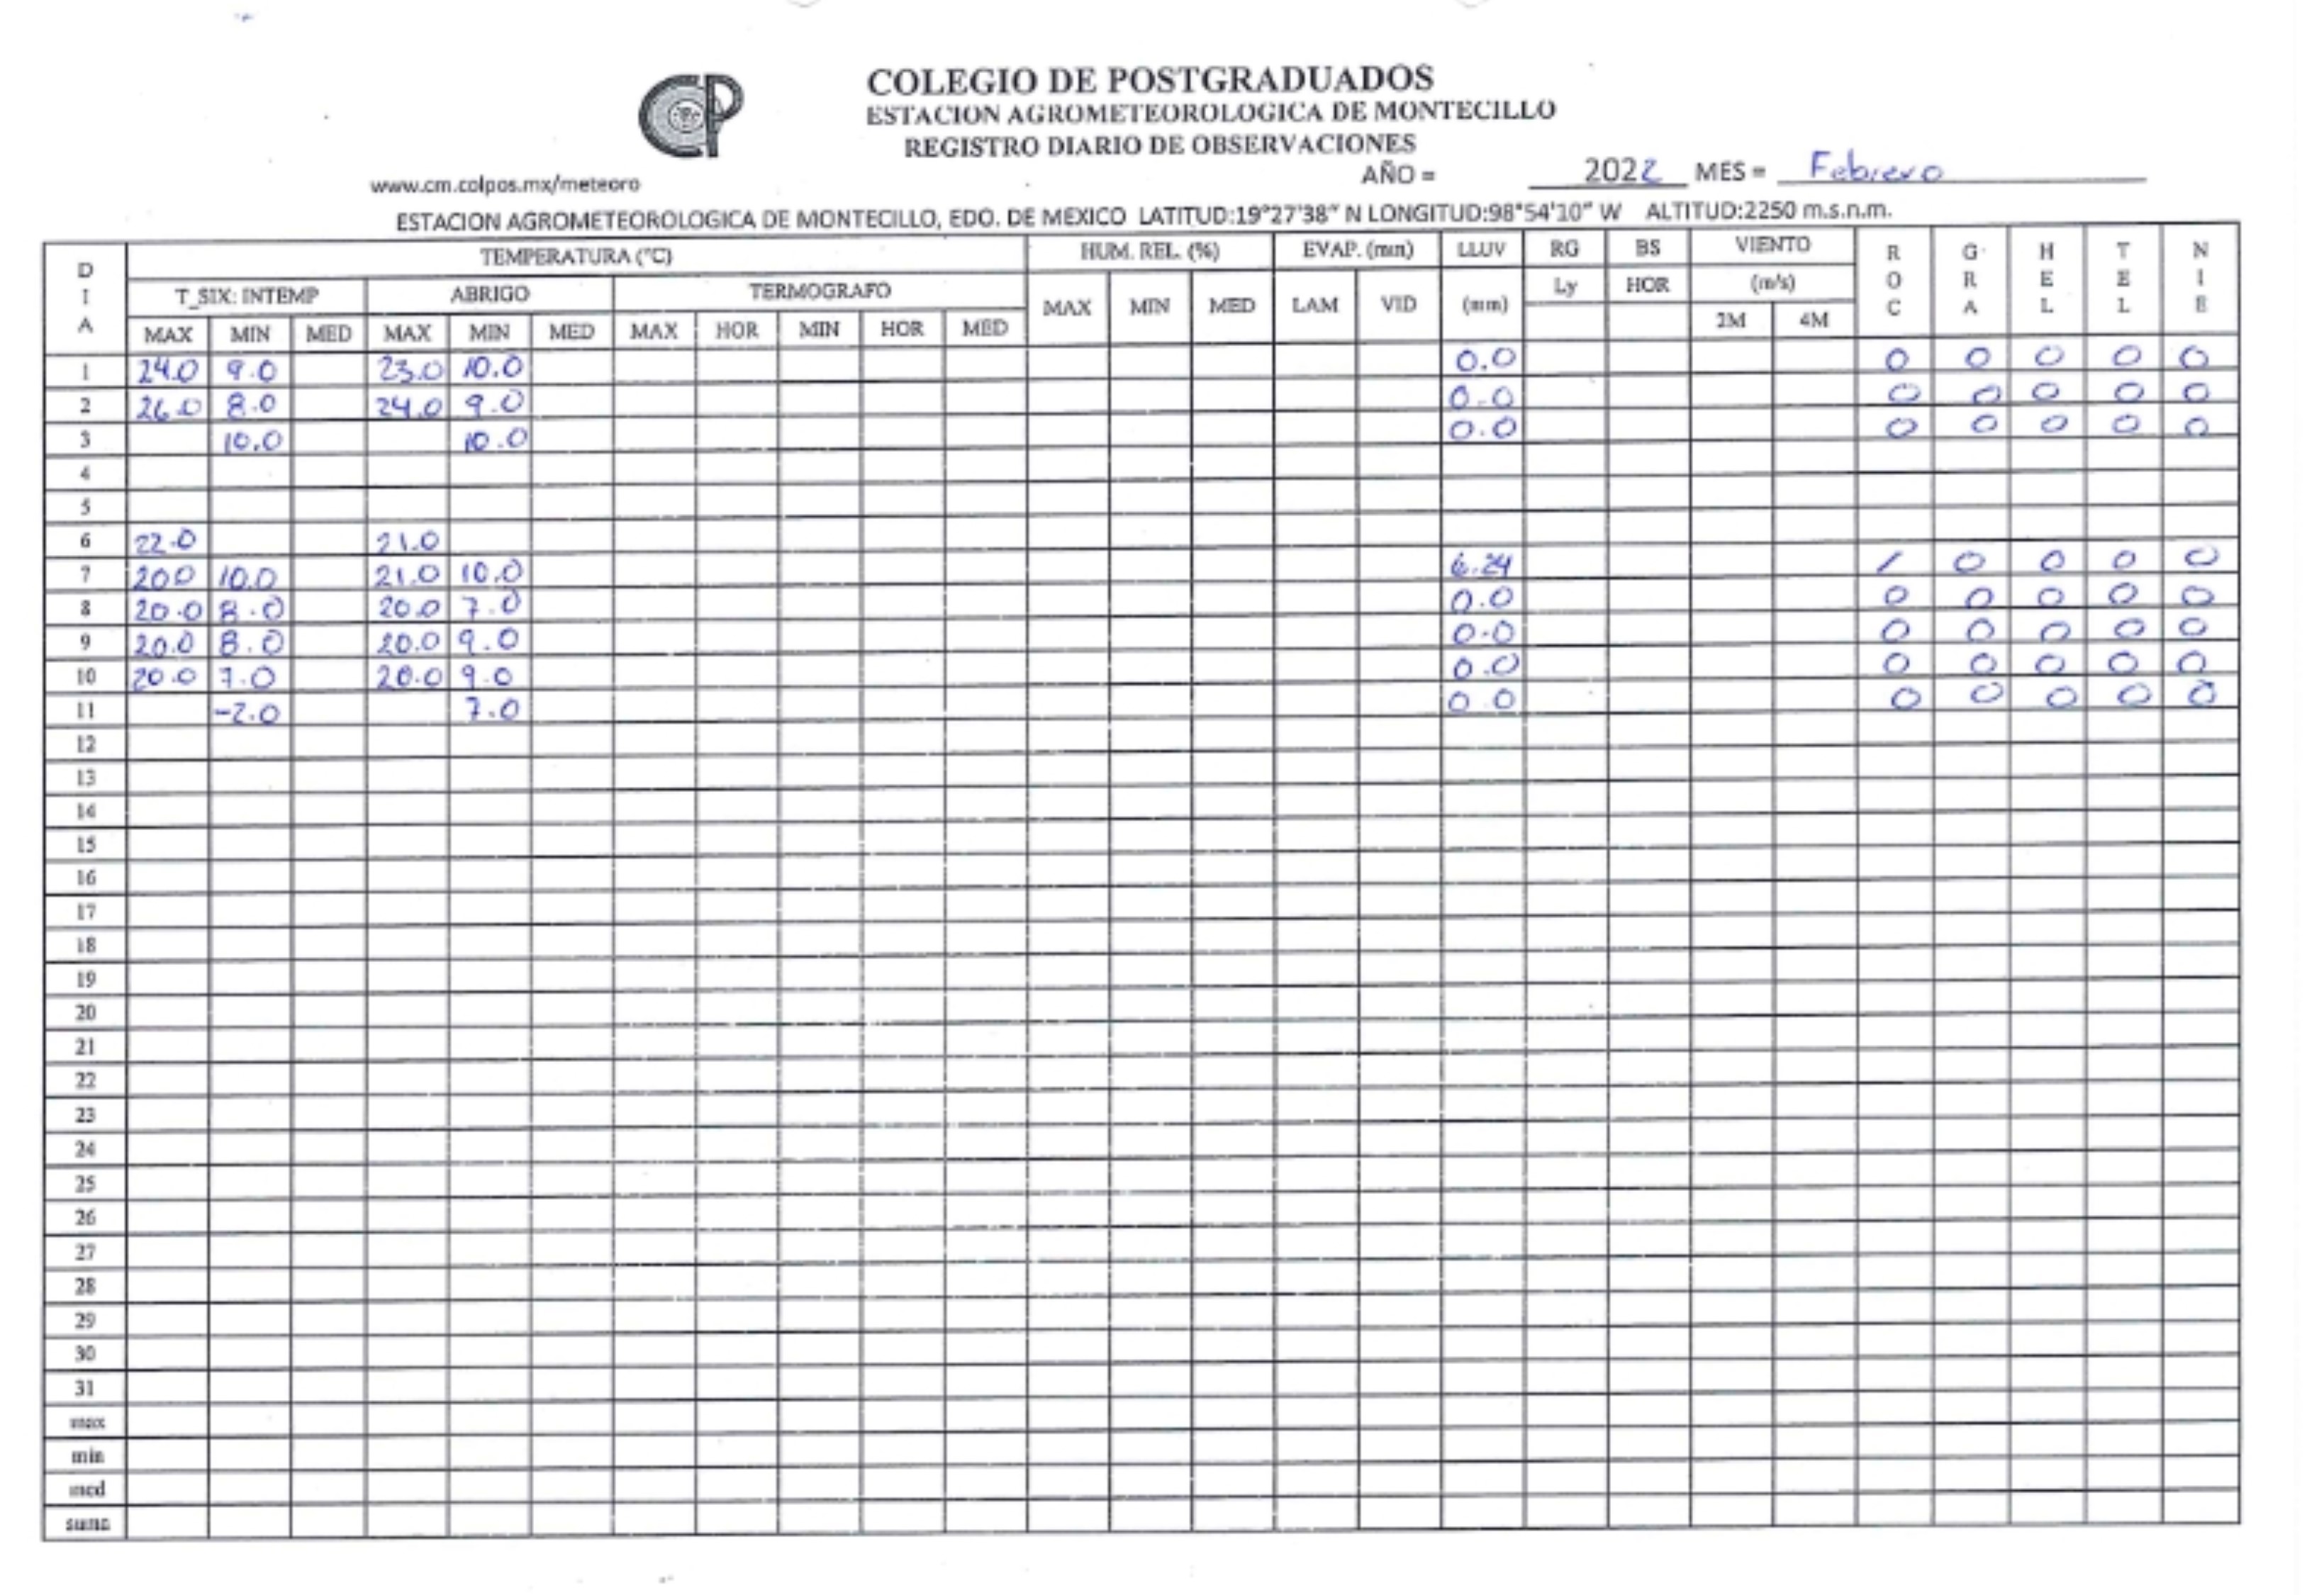 COLEGIO DE POSTGRADUADOS
ESTACION AGROMETEOROLOGICA DE MONTECILLO
REGISTRO DIARIO DE OBSERVACIONES
CP
www.cm.colpos.mx/meteoro
AÑO = 2022 MES = Febrero
ESTACION AGROMETEOROLOGICA DE MONTECILLO, EDO. DE MEXICO LATITUD:19°27'38" N LONGITUD:98°54'10" W ALTITUD:2250 m.s.n.m.
DIA TEMPERATURA (°C) HUM. REL. (%) EVAP. (mm) LLUV RG BS VIENTO ROC GRA HEL TEL NIE
T_SIX: INTEMP ABRIGO TERMOGRAFO MAX MIN MED LAM VID (mm) Ly HOR (m/s)
MAX MIN MED MAX MIN MED MAX HOR MIN HOR MED 2M 4M
1 24.0 9.0 23.0 10.0 0.0 0 0 0 0 0
2 26.0 8.0 24.0 9.0 0.0 0 0 0 0 0
3 10.0 10.0 0.0 0 0 0 0 0
4
5
6 22.0 21.0
7 20.0 10.0 21.0 10.0 6.24 / 0 0 0 0
8 20.0 8.0 20.0 7.0 0.0 0 0 0 0 0
9 20.0 8.0 20.0 9.0 0.0 0 0 0 0 0
10 20.0 7.0 20.0 9.0 0.0 0 0 0 0 0
11 -2.0 7.0 0.0 0 0 0 0 0
12
13
14
15
16
17
18
19
20
21
22
23
24
25
26
27
28
29
30
31
max
min
med
suma